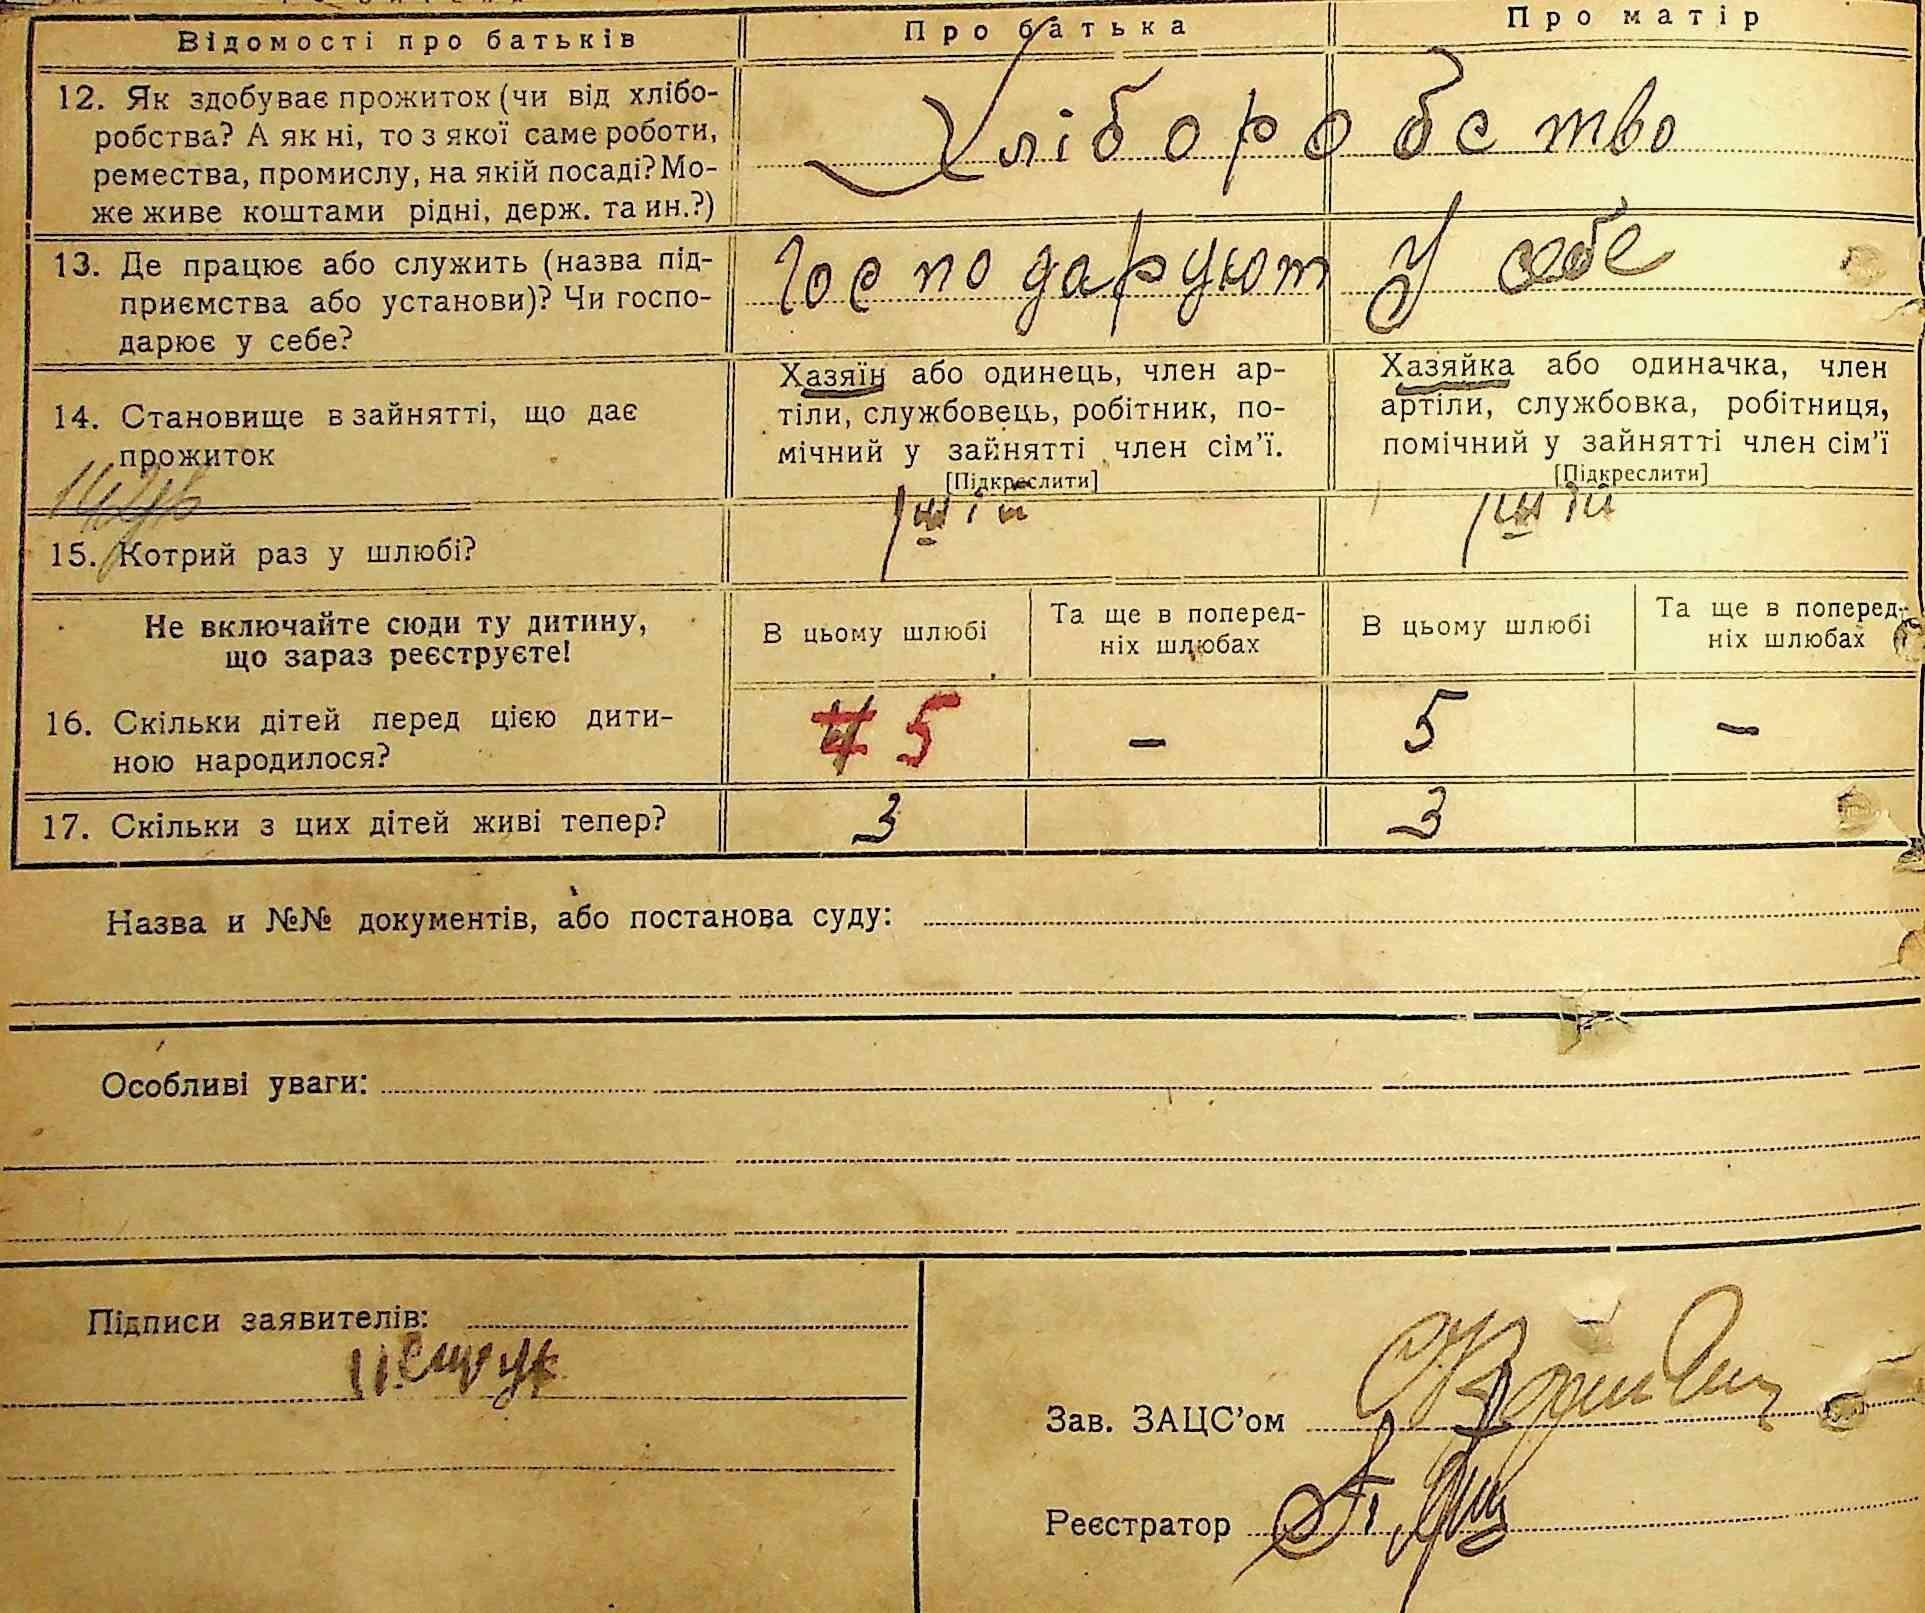 Відомості про батьків Про батька Про матір
12. Як здобуває прожиток (чи від хлібо-
робства? А як ні, то з якої саме роботи,
ремества, промислу, на якій посаді? Мо-
же живе коштами рідні, держ. та ин.?)
Хліборобство
13. Де працює або служить (назва під-
приємства або установи)? Чи госпо-
дарює у себе?
Господарують У себе
14. Становище в зайнятті, що дає
прожиток
Хазяїн або одинець, член ар-
тіли, службовець, робітник, по-
мічний у зайнятті член сім'ї.
[Підкреслити]
Хазяйка або одиначка, член
артіли, службовка, робітниця,
помічний у зайнятті член сім'ї
[Підкреслити]
15. Котрий раз у шлюбі?
Не включайте сюди ту дитину,
що зараз реєструєте!
В цьому шлюбі
Та ще в поперед-
ніх шлюбах
В цьому шлюбі
Та ще в поперед-
ніх шлюбах
16. Скільки дітей перед цією дити-
ною народилося?
4 5 – 5 –
17. Скільки з цих дітей живі тепер? 3 3
Назва и №№ документів, або постанова суду:
Особливі уваги:
Підписи заявителів:
Зав. ЗАЦС'ом
Реєстратор